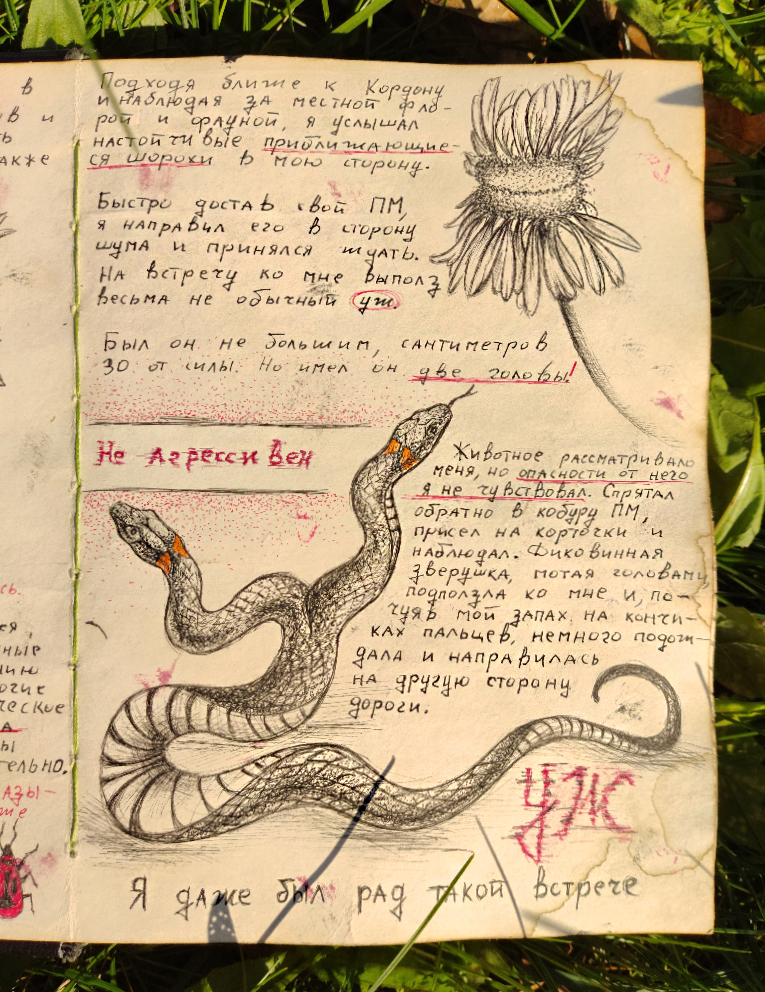 в
в и
ть
акже
сь.
ся,
ные
нию
огие
ческое
а
ы
тельно.
азы-
ше
Подходя ближе к Кордону
и наблюдая за местной фло-
рой и фауной, я услышал
настойчивые приближающие-
ся шорохи в мою сторону.
Быстро достав свой ПМ,
я направил его в сторону
шума и принялся ждать.
На встречу ко мне выполз
весьма не обычный уж.
Был он не большим, сантиметров
30 от силы. Но имел он две головы!
Не агрессивен
Животное рассматривало
меня, но опасности от него
я не чувствовал. Спрятал
обратно в кобуру ПМ,
присел на корточки и
наблюдал. Диковинная
зверушка, мотая головами,
подползла ко мне и, по-
чуяв мой запах на кончи-
ках пальцев, немного подож-
дала и направилась
на другую сторону
дороги.
УЖ
Я даже был рад такой встрече